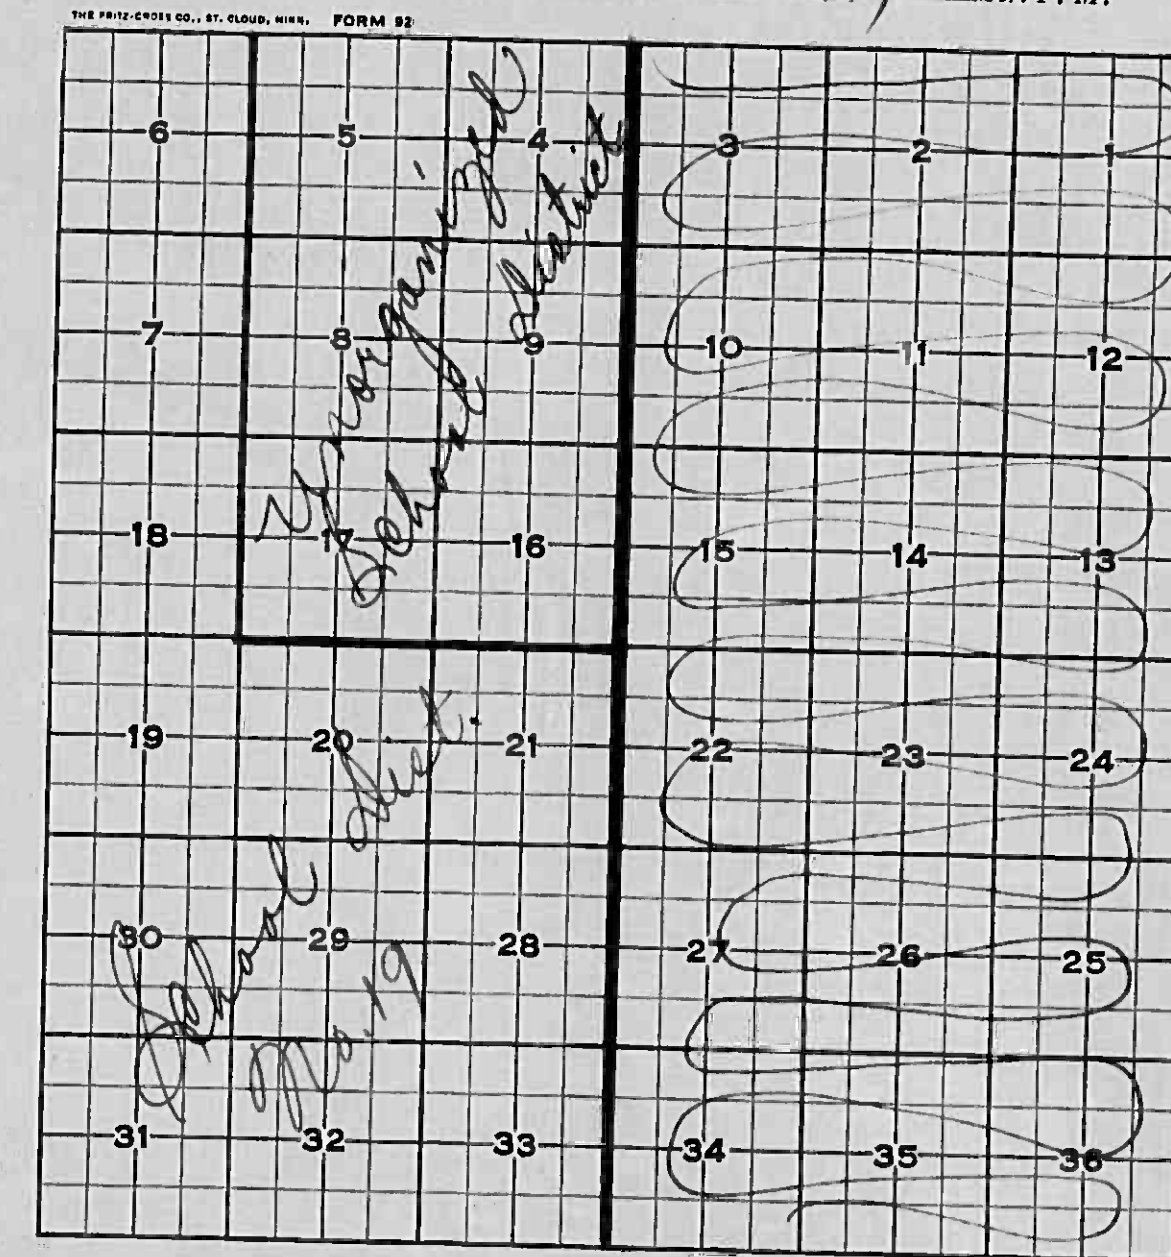 THE FRITZ-CROSS CO., ST. CLOUD, MINN. FORM 92
6 5 4 3 2 1
7 8 9 10 11 12
18 17 16 15 14 13
19 20 21 22 23 24
30 29 28 27 26 25
31 32 33 34 35 36
Unorganized
School District
School Dist.
No. 19